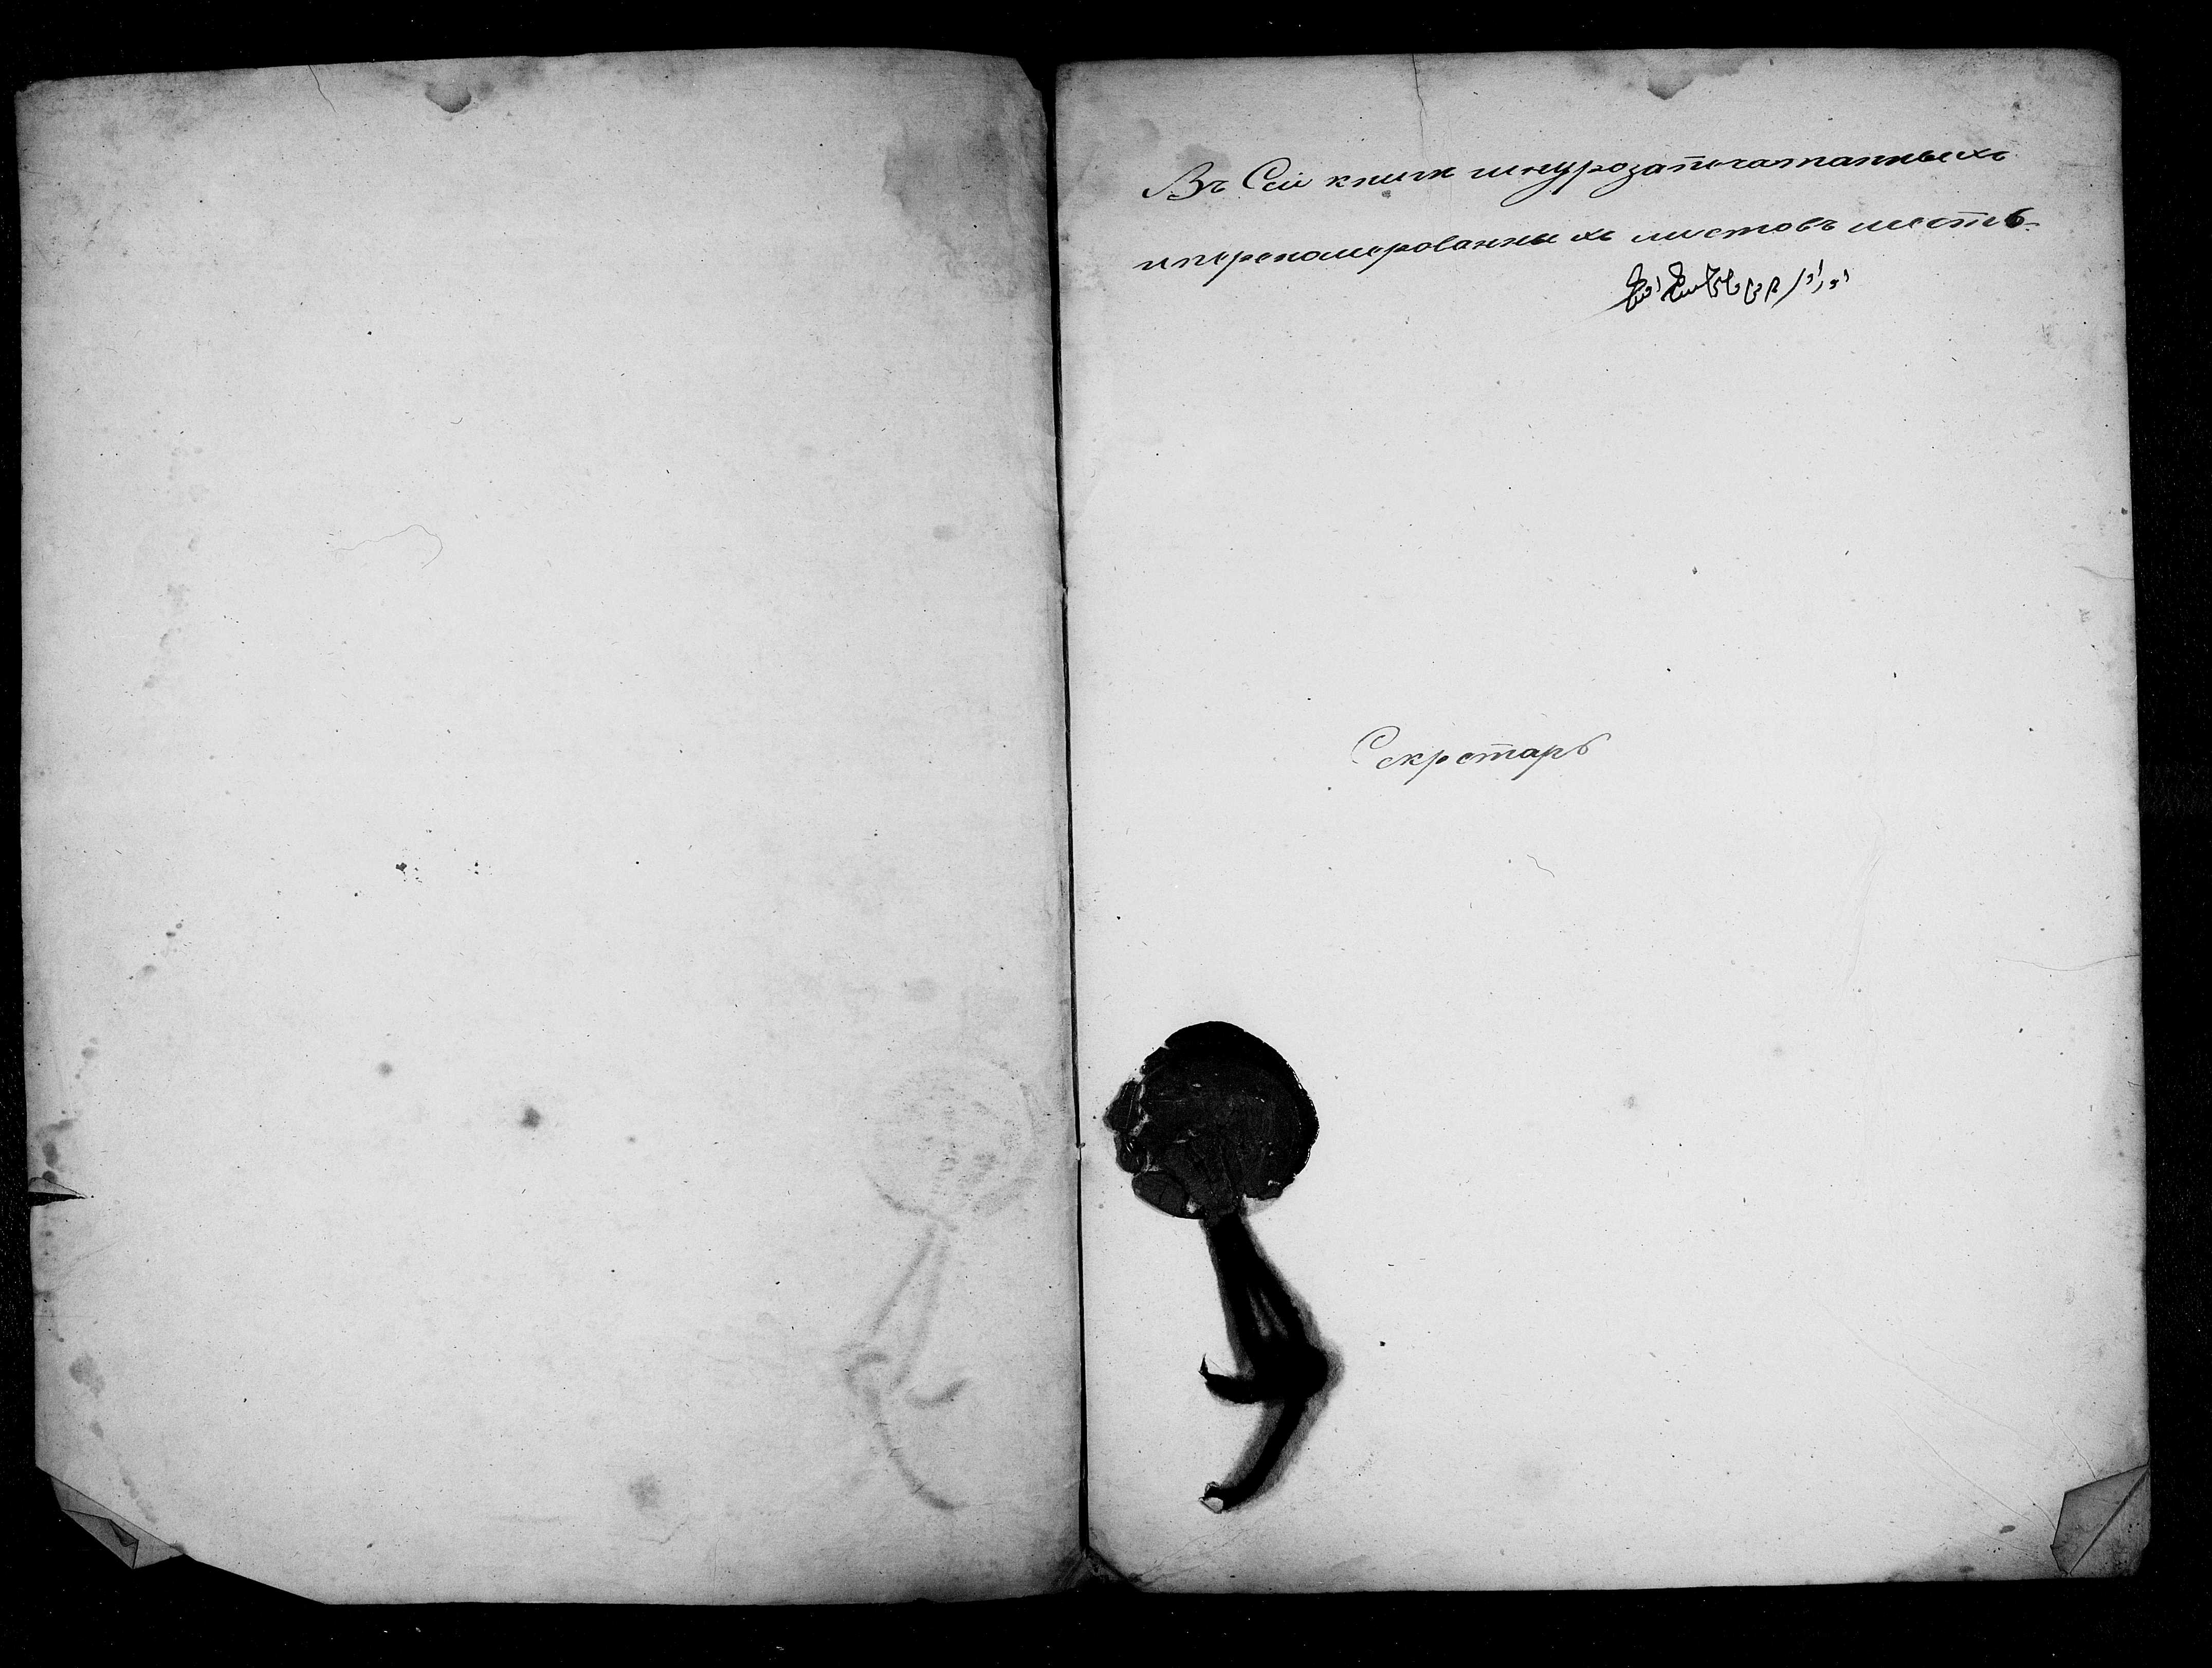 Въ Сей книги шнурозапечатанныхъ
и переномерованныхъ листовъ шесть.
Секретарь